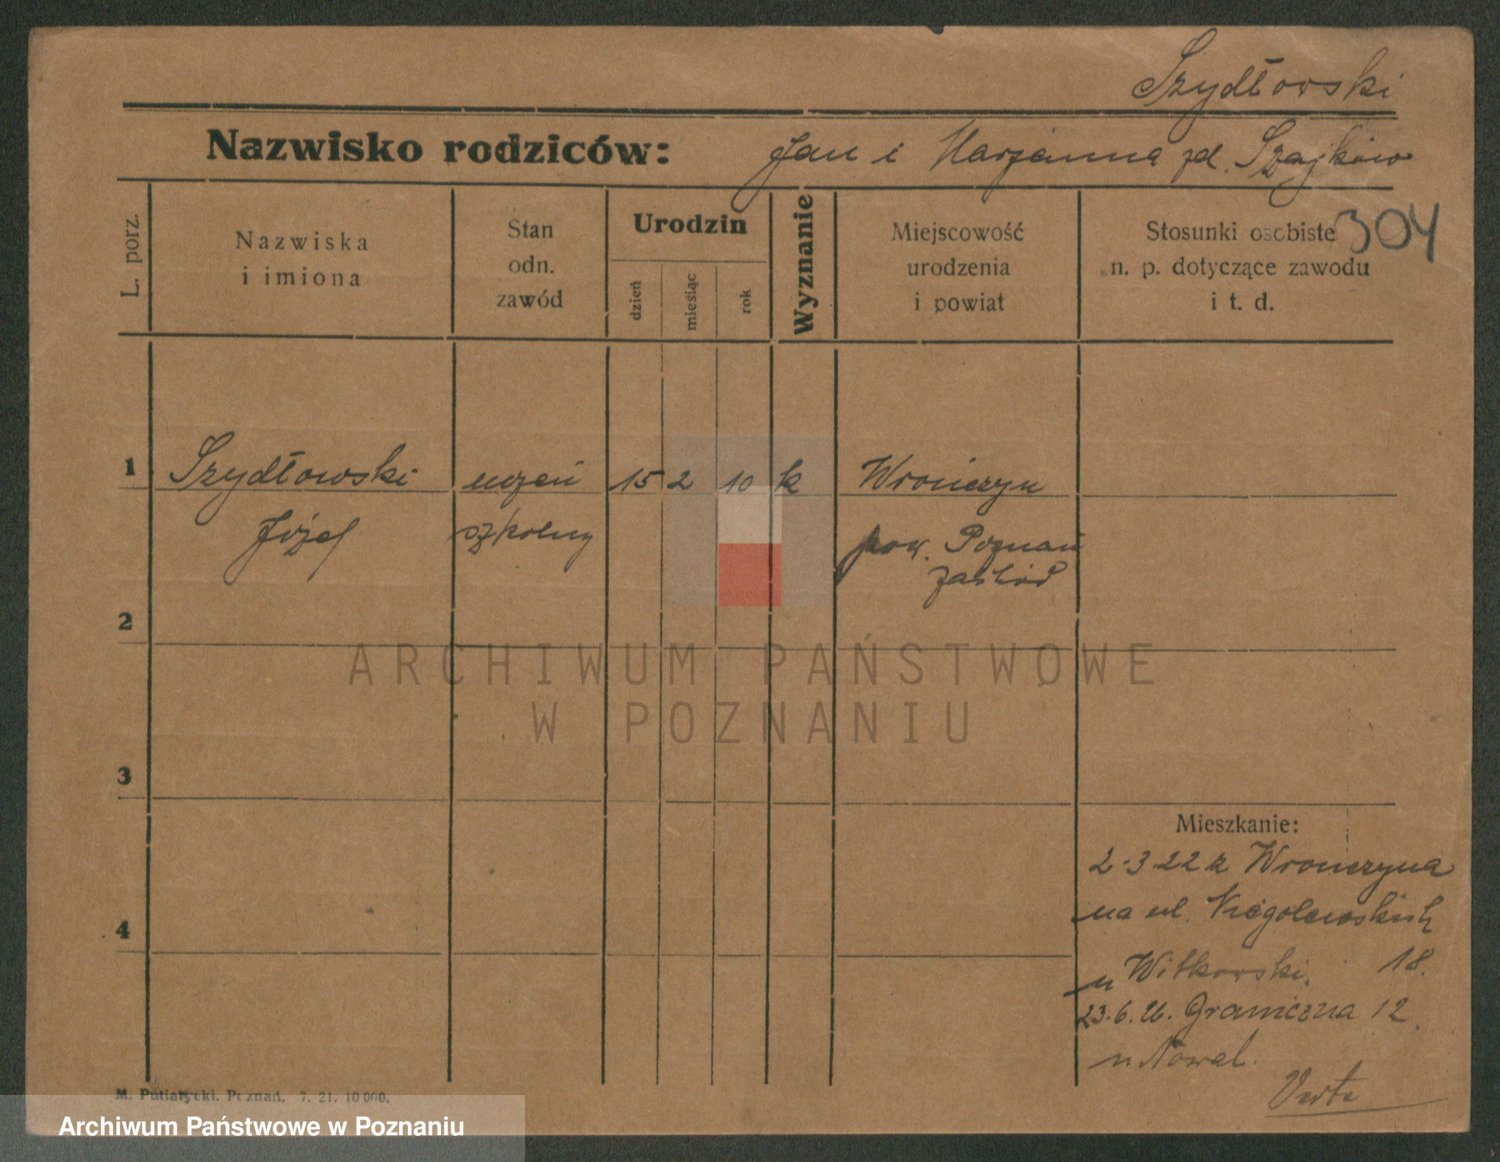 Szydłowski
Nazwisko rodziców: Jan i Marjanna zd. Szajków
304
L. porz.
Nazwiska
i imiona
Stan
odn.
zawód
Urodzin
dzień
miesiąc
rok
Wyznanie
Miejscowość
urodzenia
i powiat
Stosunki osobiste
n. p. dotyczące zawodu
i t. d.
1 Szydłowski uczeń 15 2 10 k Wronczyn
Józef szkolny pow. Poznań
zachód
2
3
4
Mieszkanie:
2.3.22 z Wronczyna
na ul. Niegolewskich
u Witkowski. 18.
23.6.26. Graniczna 12.
u Nowak.
Verte
M. Putiatycki. Poznań. 7. 21. 10 000.
ARCHIWUM PAŃSTWOWE
W POZNANIU
Archiwum Państwowe w Poznaniu